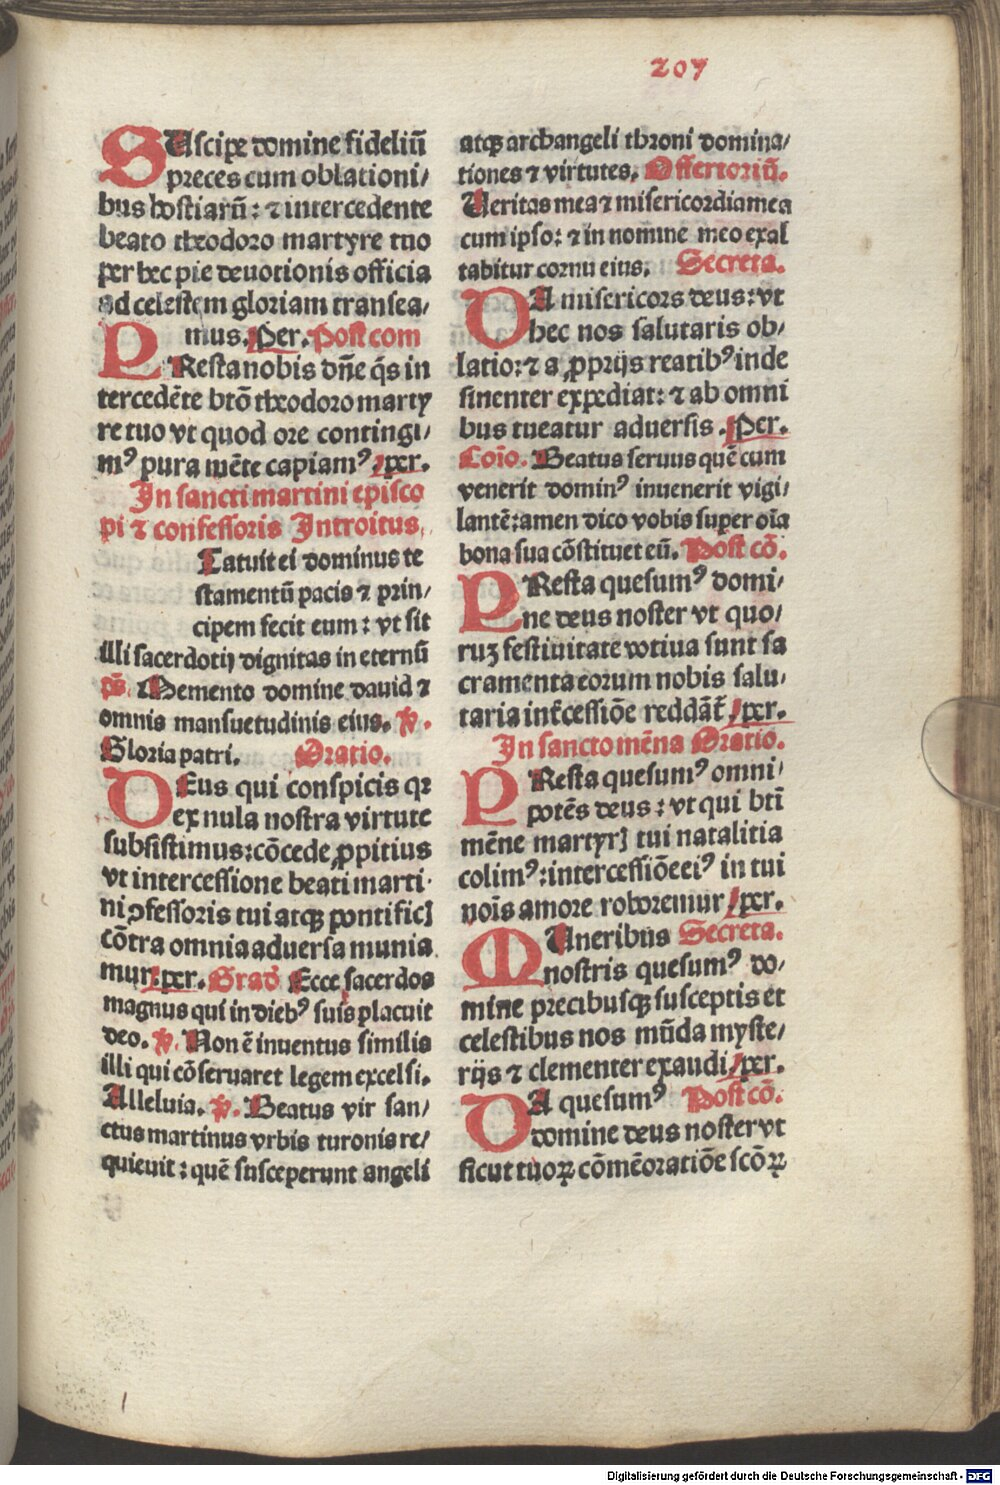 207
SUscipe domine fideliū
preces cum oblationi/
bus hostiarū: ⁊ intercedente
beato theodoro martyre tuo
per hec pie deuotionis officia
ad celestem gloriam transea/
mus. Per. Post com
PResta nobis dñe q̄s in
tercedēte btō theodoro marty
re tuo vt quod ore contingi/
mꝰ pura mēte capiamꝰ. per.
In sancti martini episco
pi ⁊ confessoris Introitus.
Tatuit ei dominus te
stamentū pacis ⁊ prin/
cipem fecit eum: vt sit
illi sacerdotij dignitas in eternū
ps̄. Memento domine dauid ⁊
omnis mansuetudinis eius. ꝟ.
Gloria patri. Oratio.
DEus qui conspicis qꝛ
ex nula nostra virtute
subsistimus: cōcede ꝓpitius
vt intercessione beati marti
ni ꝯfessoris tui atqꝫ pontificꝭ
cōtra omnia aduersa munia
mur. per. Grad̄ Ecce sacerdos
magnus qui in diebꝰ suis placuit
deo. ꝟ. Non ē inuentus similis
illi qui cōseruaret legem excelsi.
Alleluia. ꝟ. Beatus vir san/
ctus martinus vrbis turonis re/
quieuit: quē susceperunt angeli
atqꝫ archangeli throni domina/
tiones ⁊ virtutes. Offertoriū.
Ueritas mea ⁊ misericordia mea
cum ipso: ⁊ in nomine meo exal
tabitur cornu eius. Secreta.
DA misericors deus: vt
hec nos salutaris ob/
latio: ⁊ a ꝓprijs reatibꝰ inde
sinenter expediat: ⁊ ab omni
bus tueatur aduersis. Per.
Coīo. Beatus seruus quē cum
venerit dominꝰ inuenerit vigi/
lantē: amen dico vobis super oīa
bona sua cōstituet eū. Post cō.
PResta quesumꝰ domi/
ne deus noster vt quo/
ruꝫ festiuitate votiua sunt sa
cramenta eorum nobis salu/
taria int̄cessiōe reddāt̄. per.
In sancto mēna Oratio.
PResta quesumꝰ omni/
potēs deus: vt qui bti̅
mēne martyrꝭ tui natalitia
colimꝰ: intercessiōe eiꝰ in tui
noīs amore roboremur. per.
MUneribus Secreta.
nostris quesumꝰ do/
mine precibusqꝫ susceptis et
celestibus nos mūda myste/
rijs ⁊ clementer exaudi. per.
DA quesumꝰ Post cō.
domine deus noster vt
sicut tuoꝝ cōmēoratiōe scōꝝ
Digitalisierung gefördert durch die Deutsche Forschungsgemeinschaft - DFG